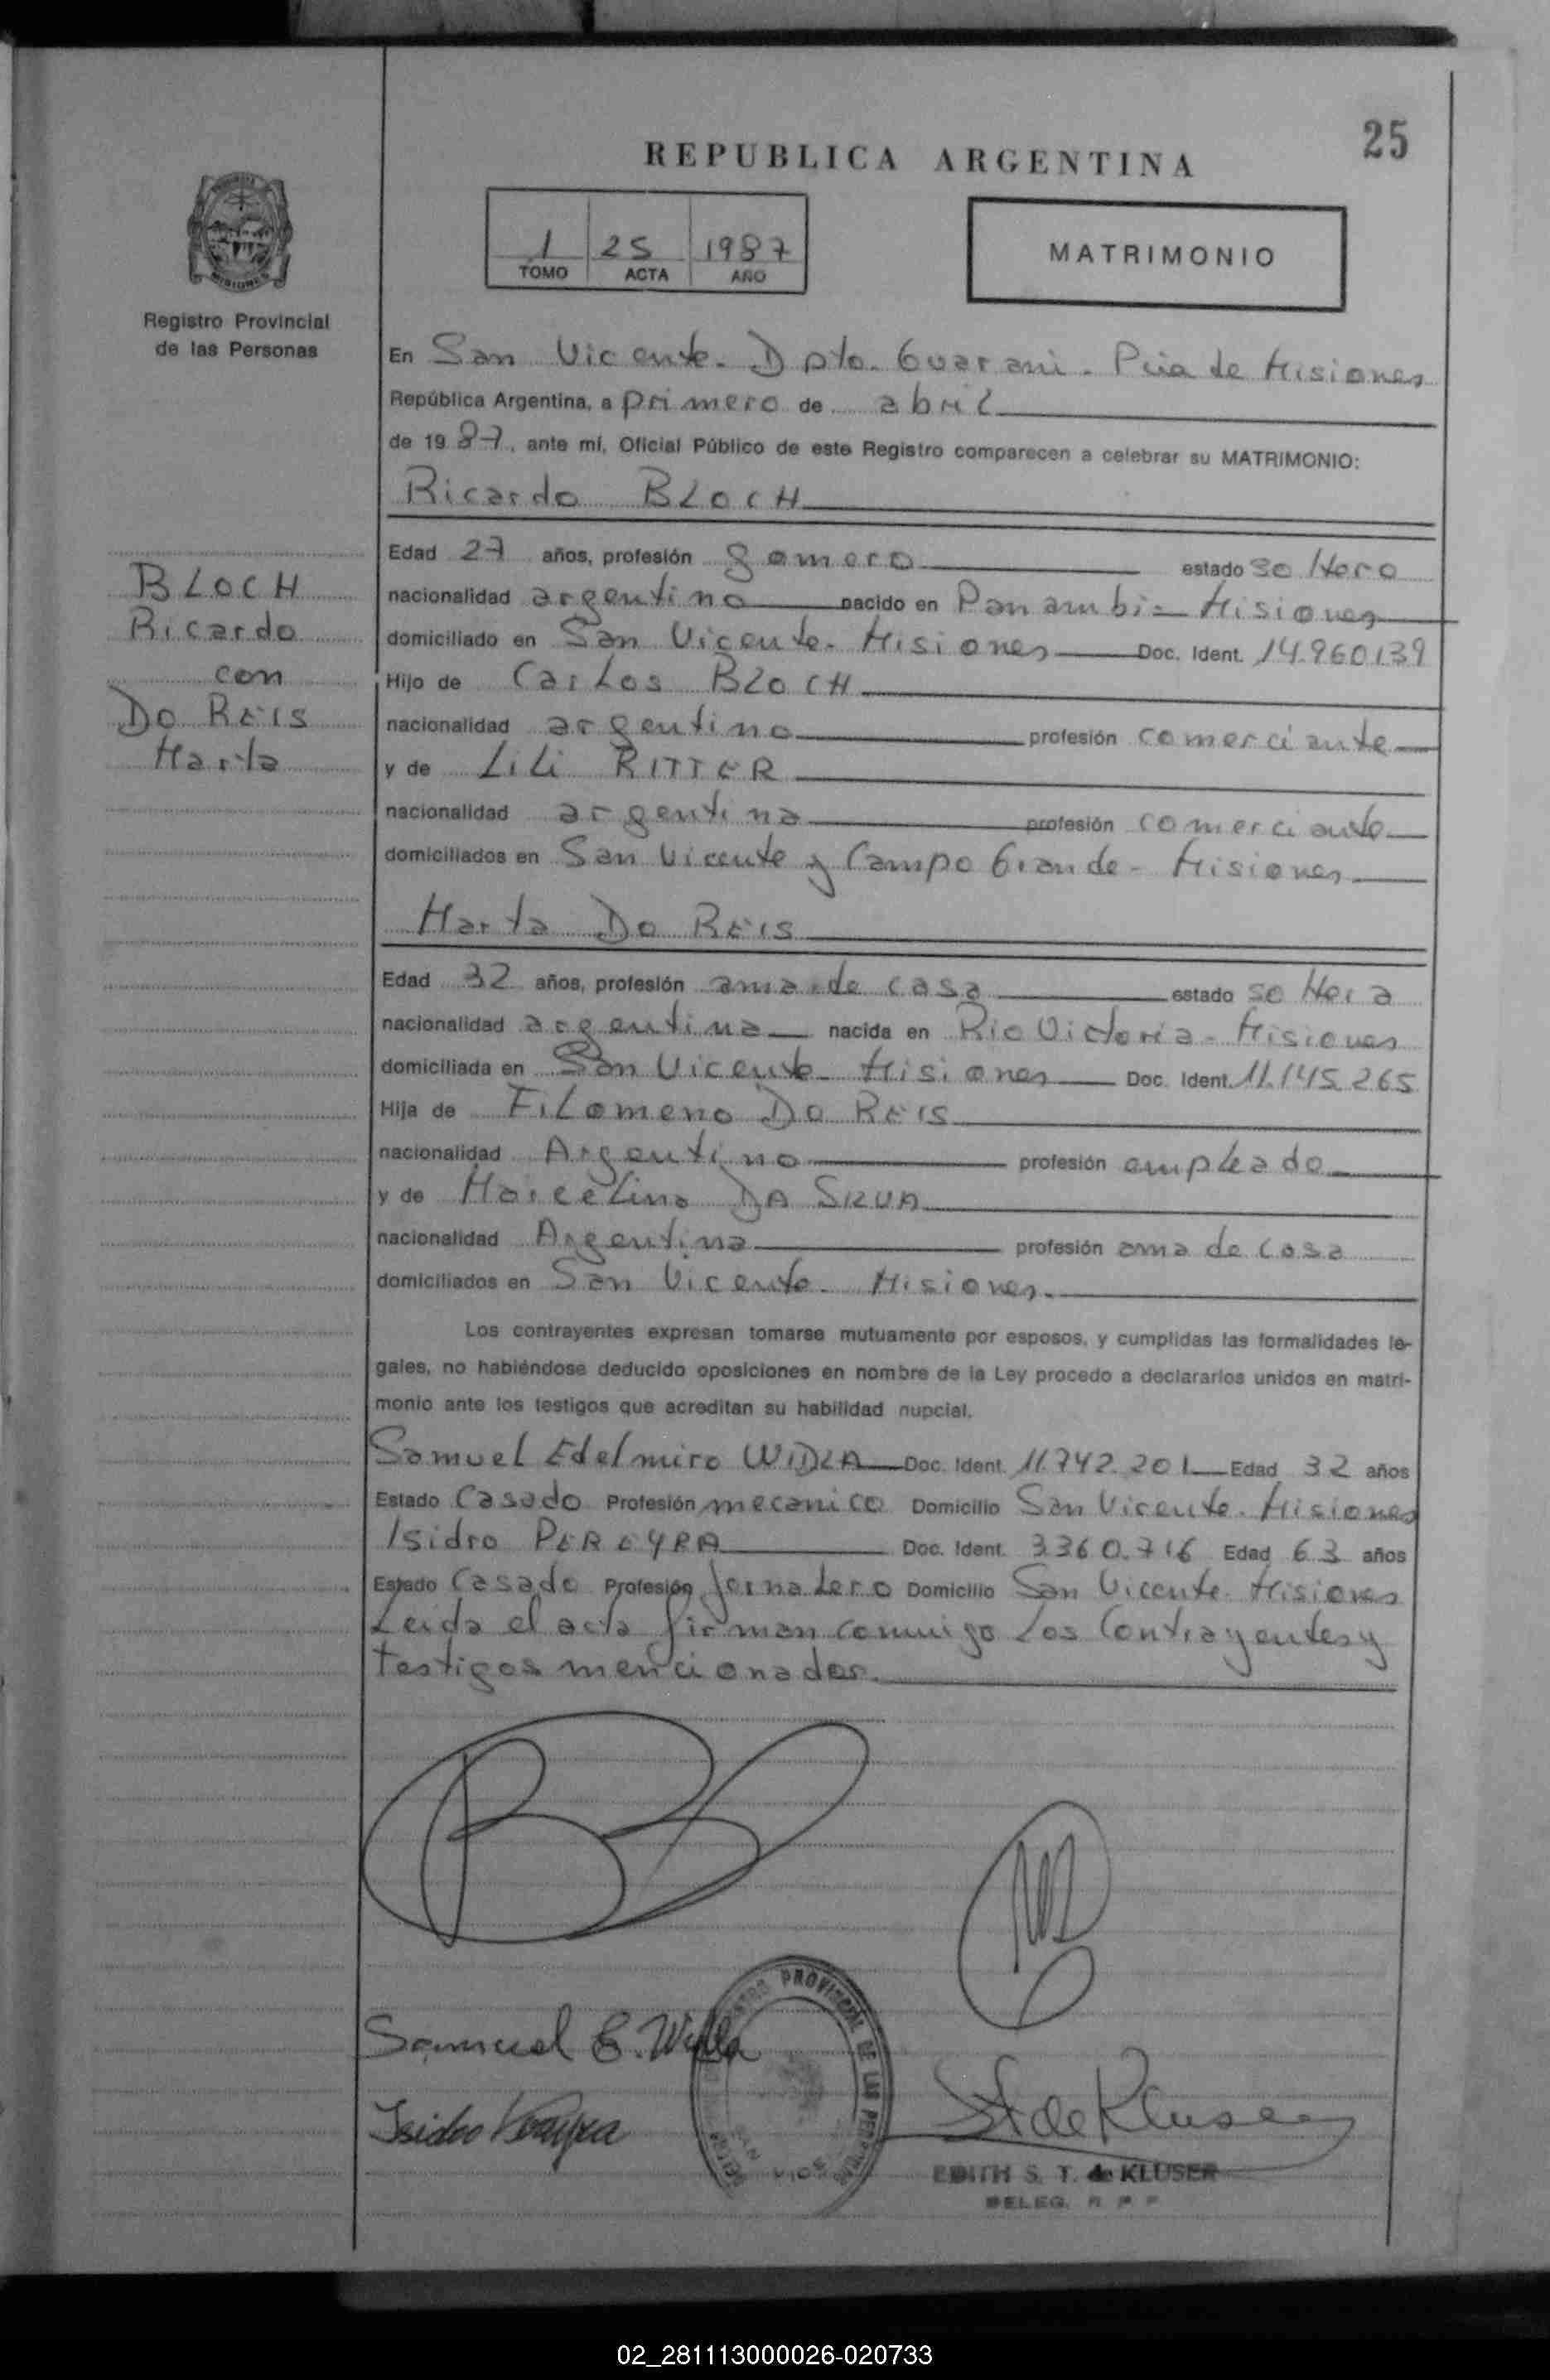 25
REPUBLICA ARGENTINA
1 25 1987
TOMO ACTA AÑO
MATRIMONIO
MISIONES
Registro Provincial
de las Personas
En San Vicente - Dpto. Guarani - Pcia de Misiones
República Argentina, a primero de abril
de 1987, ante mí, Oficial Público de este Registro comparecen a celebrar su MATRIMONIO:
Ricardo BLOCH
BLOCH
Ricardo
con
DO REIS
Marta
Edad 27 años, profesión gomero estado soltero
nacionalidad argentino nacido en Panambi - Misiones
domiciliado en San Vicente - Misiones Doc. Ident. 14.960.139
Hijo de Carlos BLOCH
nacionalidad argentino profesión comerciante
y de Lili RITTER
nacionalidad argentina profesión comerciante
domiciliados en San Vicente y Campo Grande - Misiones
Marta DO REIS
Edad 32 años, profesión ama de casa estado soltera
nacionalidad argentina nacida en Rio Victoria - Misiones
domiciliada en San Vicente - Misiones Doc. Ident. 11.145.265
Hija de Filomeno DO REIS
nacionalidad Argentino profesión empleado
y de Marcelina DA SILVA
nacionalidad Argentina profesión ama de casa
domiciliados en San Vicente - Misiones.
Los contrayentes expresan tomarse mutuamente por esposos, y cumplidas las formalidades le-
gales, no habiéndose deducido oposiciones en nombre de la Ley procedo a declararlos unidos en matri-
monio ante los testigos que acreditan su habilidad nupcial.
Samuel Edelmiro WIDLA Doc. Ident. 11.742.201 Edad 32 años
Estado Casado Profesión mecanico Domicilio San Vicente - Misiones
Isidro PEREYRA Doc. Ident. 3360.716 Edad 63 años
Estado Casado Profesión Jornalero Domicilio San Vicente - Misiones
Leida el acta firman conmigo los Contrayentes y
testigos mencionados.
Samuel E. Widla
Isidro Pereyra
REGISTRO PROVINCIAL DE LAS PERSONAS
SAN VICENTE
EDITH S. T. de KLUSER
DELEG. R P P
02_281113000026-020733